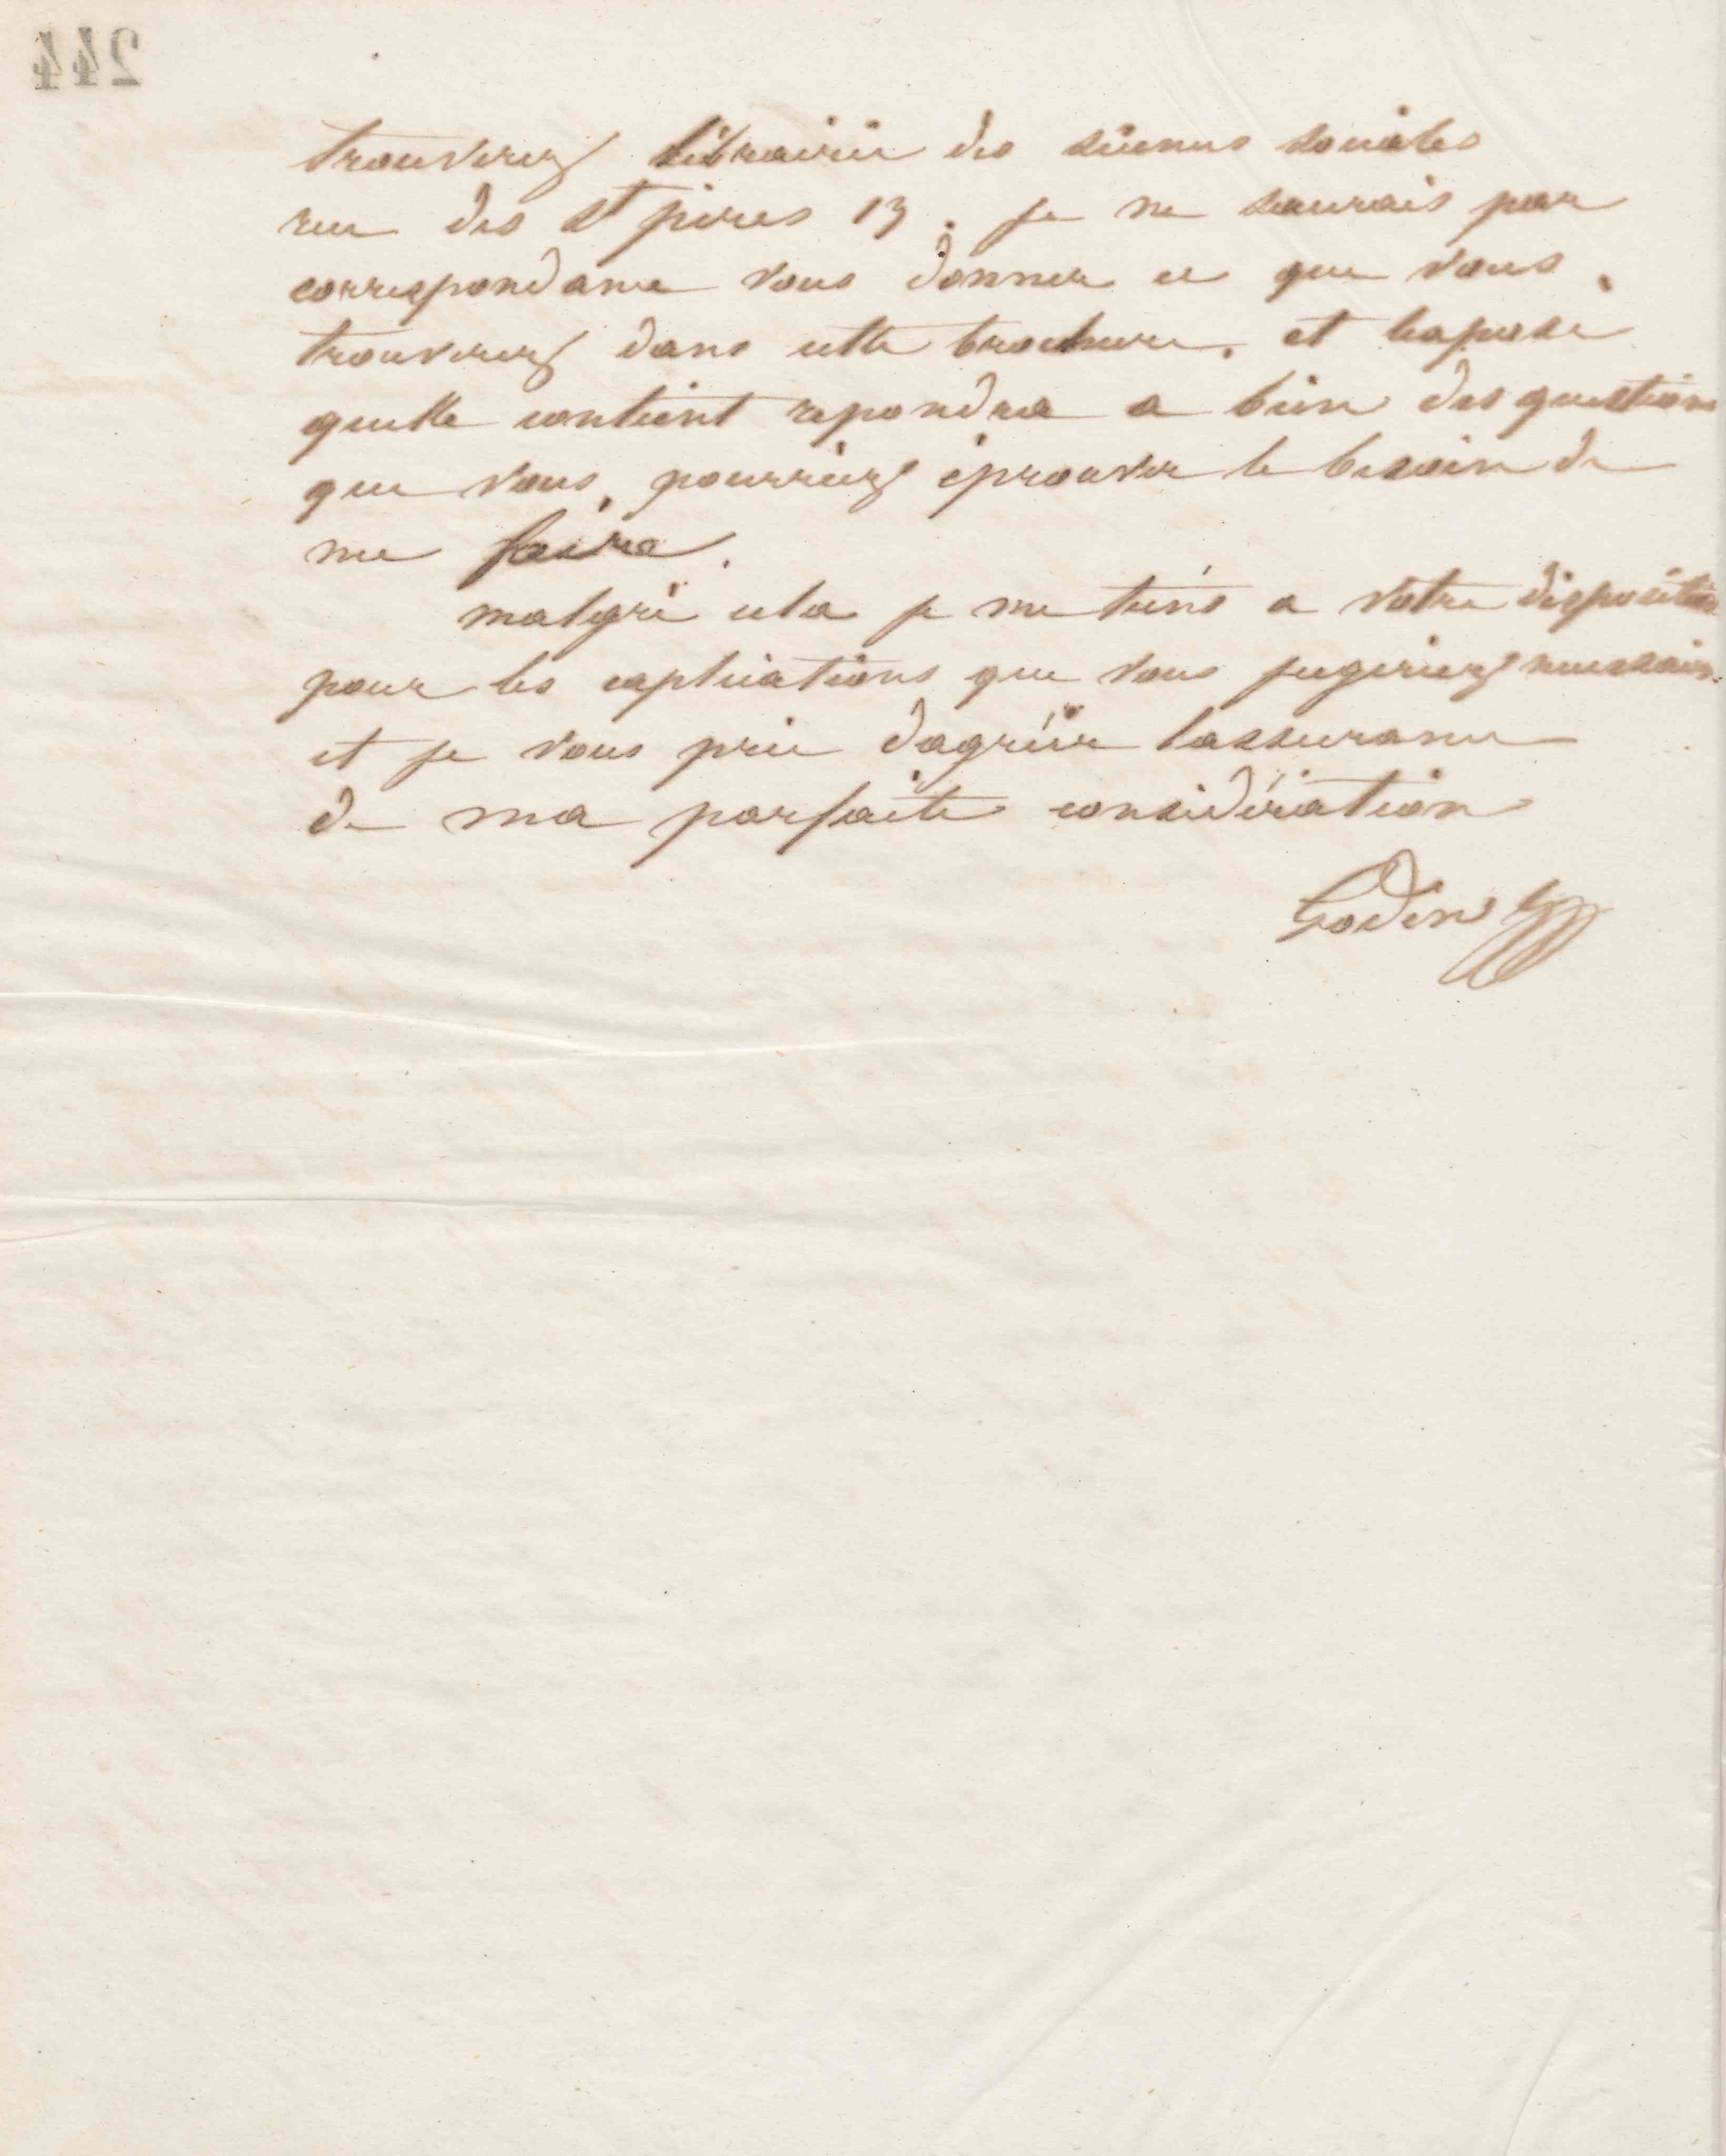 244
trouverez librairie des siences sociales
rue des St pères 13. je ne saurais par
correspondance vous donner ce que vous
trouverez dans cette brochure. et lexposé
quelle contient repondra a bien des questions
que vous pourriez éprouver le besoin de
me faire.
malgré cela je me tiens a votre disposition
pour les explications que vous jugeriez necessaires
et je vous prie dagréér lassurance
de ma parfaite considération
Godin